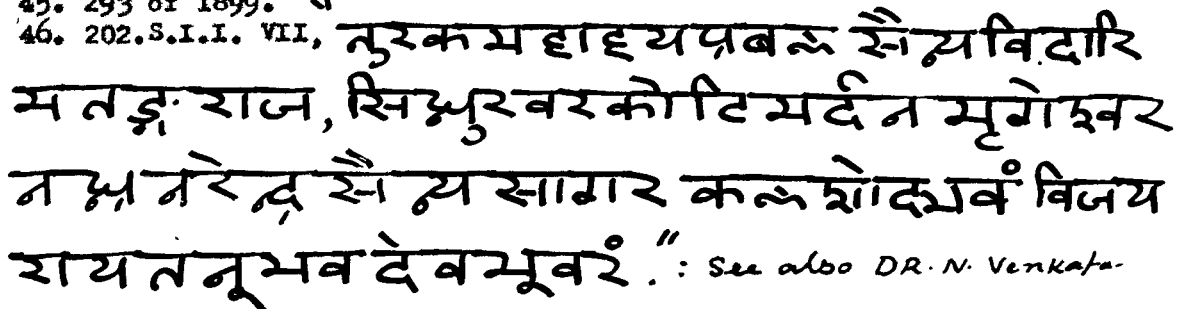 45. 293 of 1899. "
46. 202.S.I.I. VII, तुरक महाहय प्रबळ सैन्य विदारि
मतङ्गराज, सिन्धुरवरकोटिमर्दन मृगेश्वर
नन्ध्र नरेन्द्र सैन्य सागर कळशोद्भवं विजय
राय तनूभव देव भूवरं." : See also DR. N. Venkata-